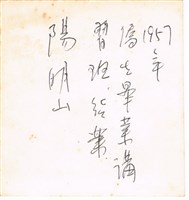 1957年
僑生畢業講
習班結業
陽明山